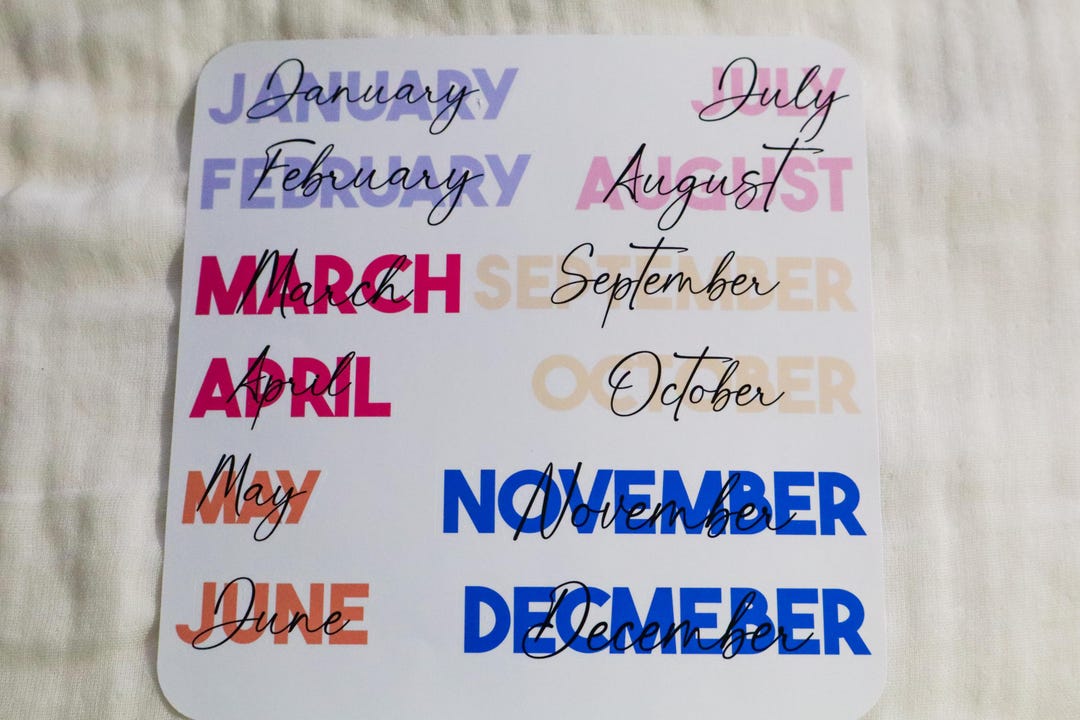 JANUARY
January
FEBRUARY
February
MARCH
March
APRIL
April
MAY
May
JUNE
June
JULY
July
AUGUST
August
SEPTEMBER
September
OCTOBER
October
NOVEMBER
November
DECMEBER
December